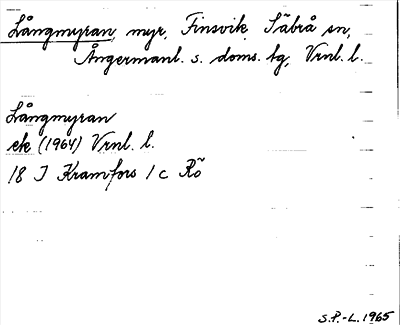 Långmyran, myr, Finsvik, Säbrå sn,
Ångermanl. s. doms. tg, Vrnl. l.
Långmyran
ek (1964) Vrnl. l.
18 I Kramfors 1 c Rö
S.P.-L. 1965